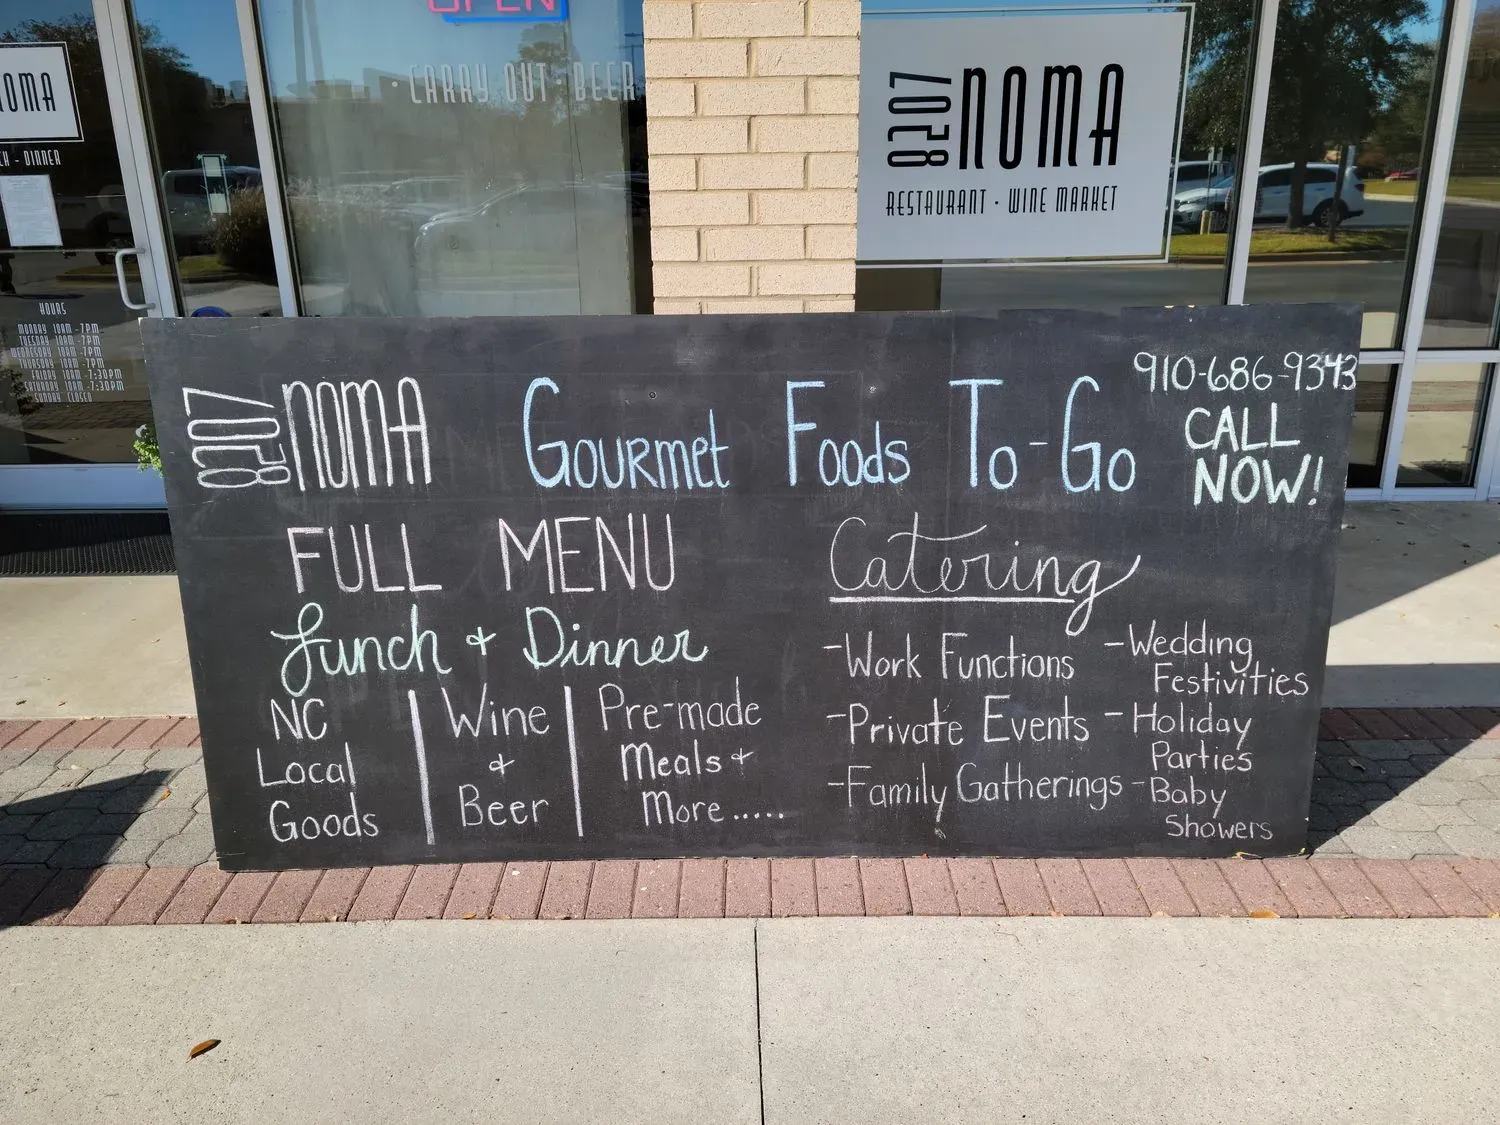 OPEN
· CARRY OUT · BEER
NOMA
- DINNER
8207 NOMA
RESTAURANT · WINE MARKET
HOURS
MONDAY 10AM - 7PM
TUESDAY 10AM - 7PM
WEDNESDAY 10AM - 7PM
THURSDAY 10AM - 7PM
FRIDAY 10AM - 7:30PM
SATURDAY 10AM - 7:30PM
SUNDAY CLOSED
8207 NOMA
Gourmet Foods To-Go
910-686-9343
CALL
NOW!
FULL MENU
Lunch + Dinner
NC
Local
Goods
Wine
+
Beer
Pre-made
Meals +
More.....
Catering
-Work Functions
-Private Events
-Family Gatherings
-Wedding
Festivities
-Holiday
Parties
-Baby
Showers